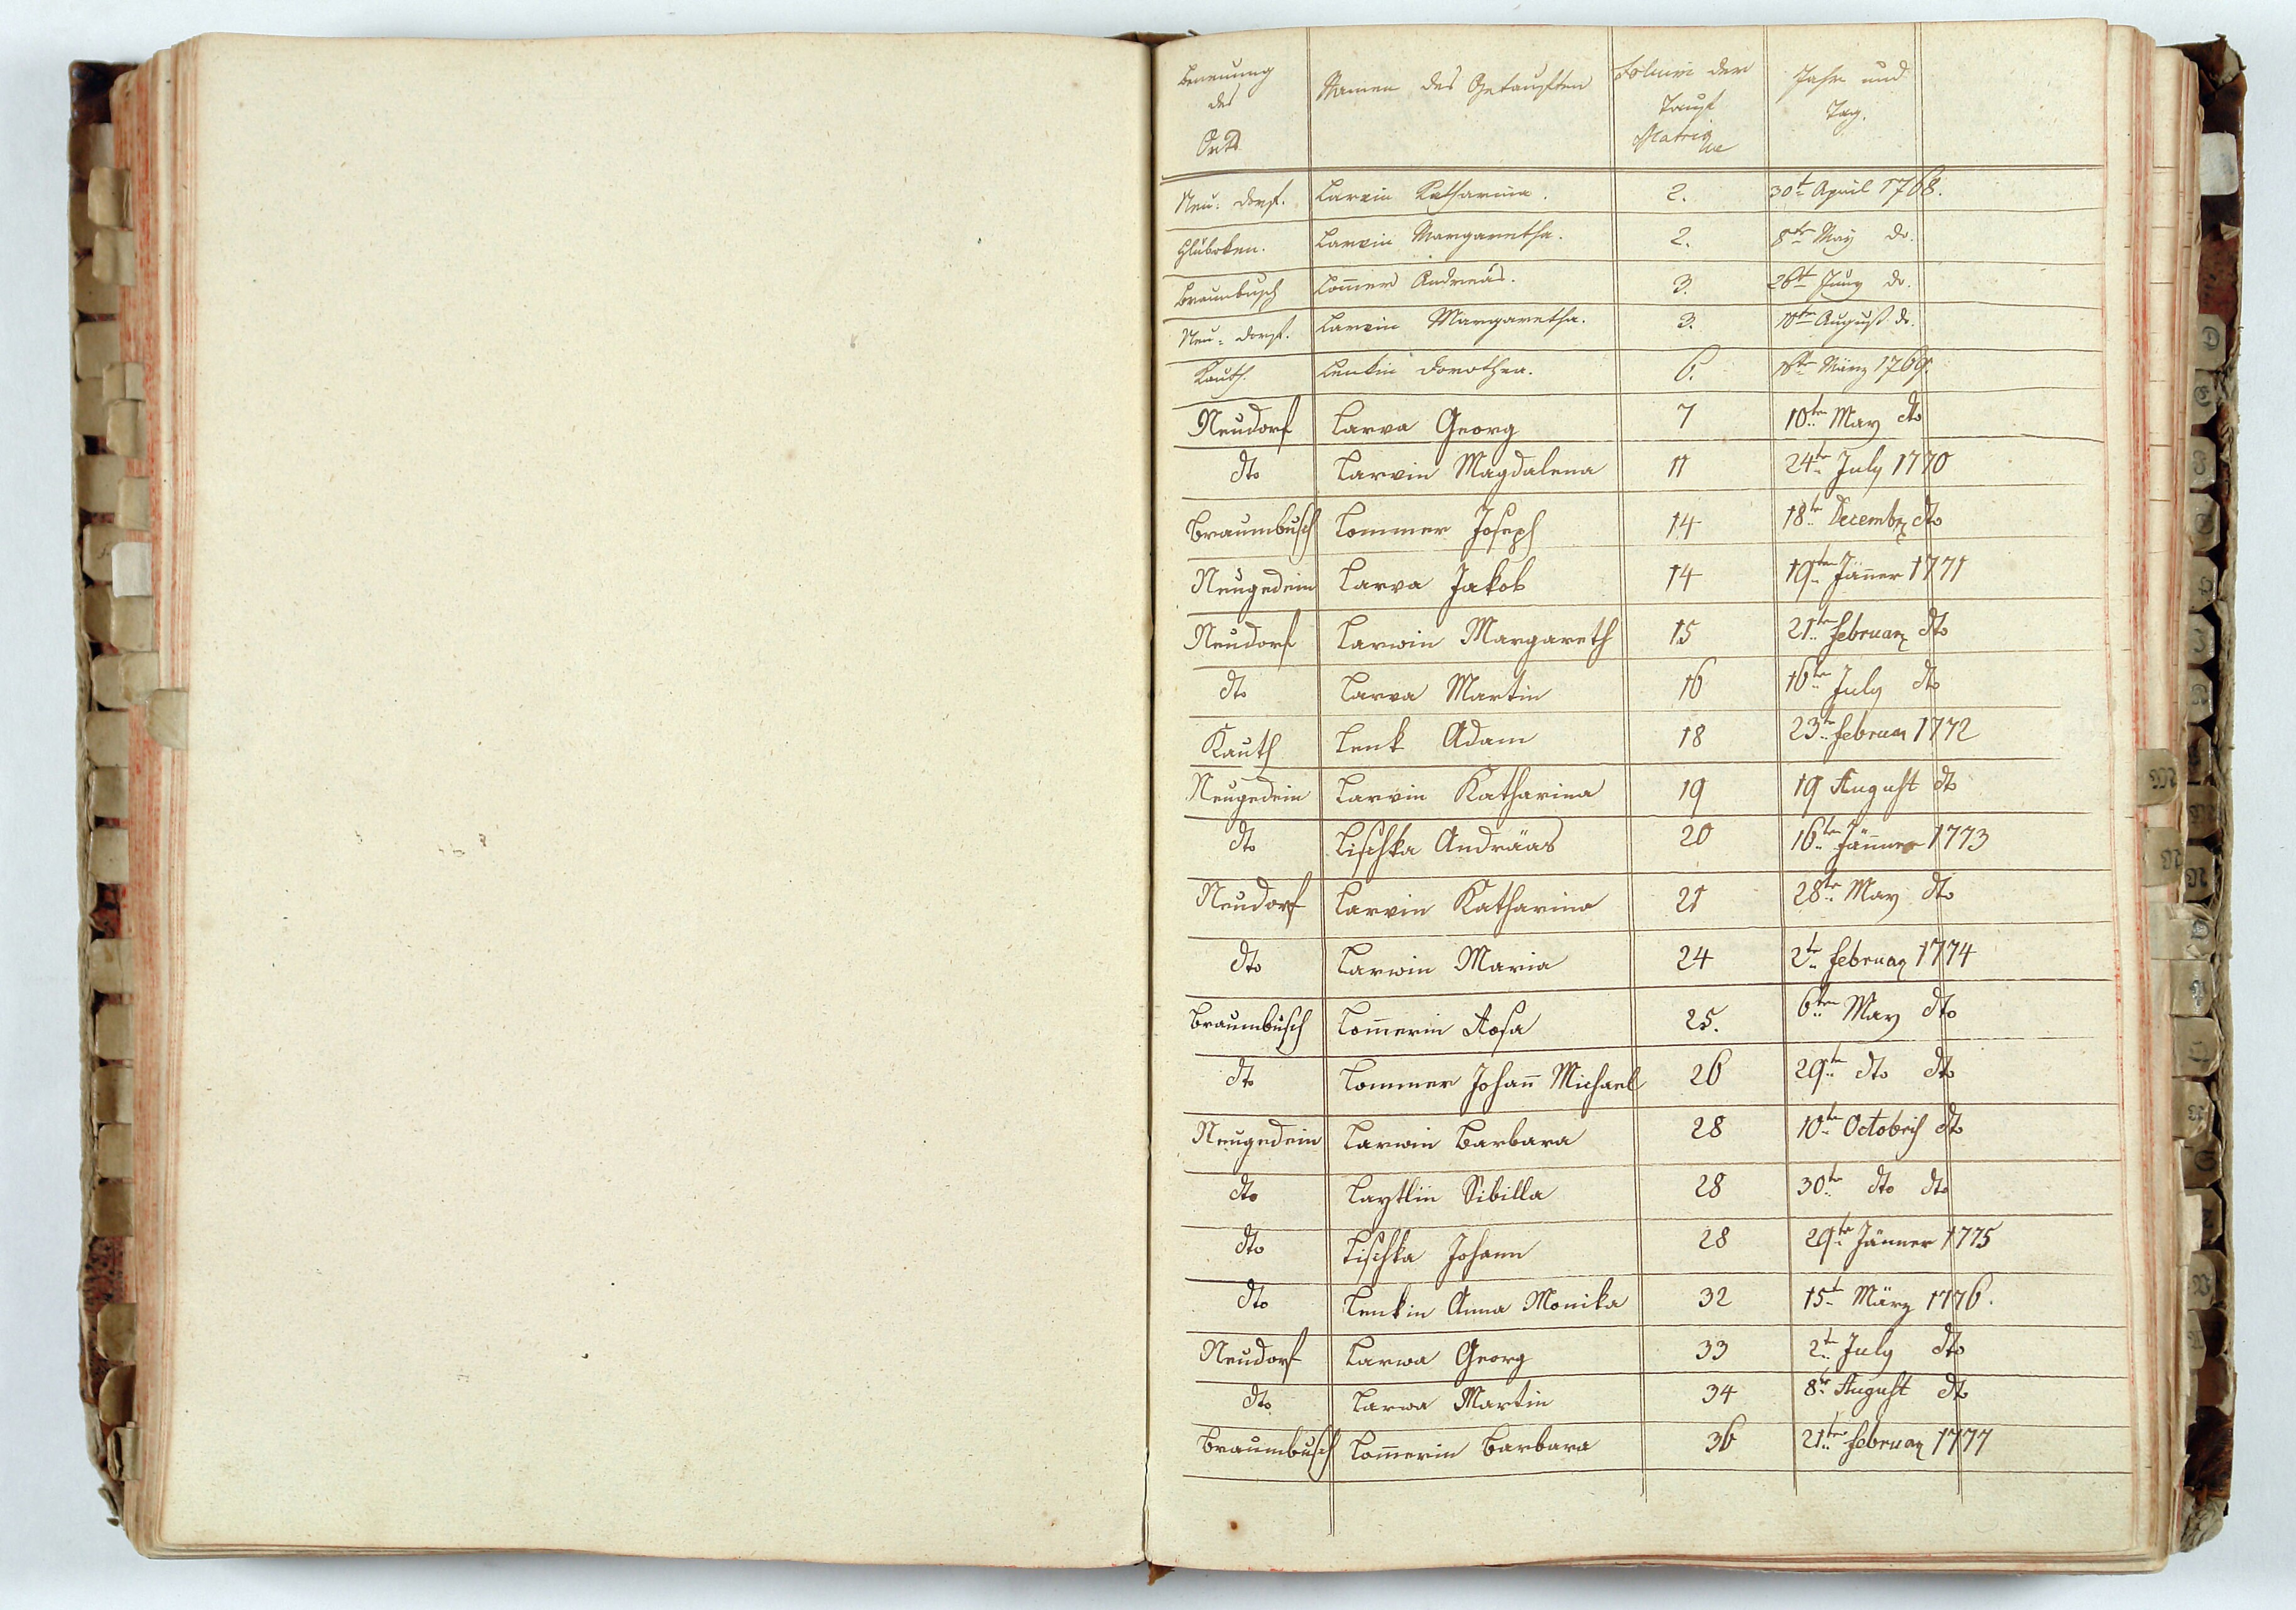 Benenung des Orts | Namen des Getauften | Folium der Tauf Matrique | Jahr und Tag.
Neu-dorf. | Larvin Katharina. | 2. | 30t April 1768.
Hluboken. | Larvin Margaretha. | 2. | 8te May do.
Braunbusch | Lom̄er Andreas. | 3. | 26t Juny do.
Neu-dorf. | Larvin Margaretha. | 3. | 10te August do.
Kauth. | Lenkin Dorothea. | 6. | 16te März 1769.
Neudorf | Larva Georg | 7 | 10te May dto
dto | Larvin Magdalena | 11 | 24te July 1770
Braumbusch | Lommer Joseph | 14 | 18te Decembr dto
Neugedein | Larva Jakob | 14 | 19te Jäner 1771
Neudorf | Larwin Margareth | 15 | 21te Februar dto
dto | Larva Martin | 16 | 16te July dto
Kauth | Lenk Adam | 18 | 23te Februar 1772
Neugedein | Larvin Katharina | 19 | 19 August dto
dto | Lischka Andräas | 20 | 16te Jänner 1773
Neudorf | Larvin Katharina | 21 | 28te May dto
dto | Larwin Maria | 24 | 2te Februar 1774
Braumbusch | Lom̄erin Rosa | 25. | 6te May dto
dto | Lommer Johan̄ Michael | 26 | 29te dto dto
Neugedein | Larwin Barbara | 28 | 10te Octobris dto
dto | Laytlin Sibilla | 28 | 30te dto dto
dto | Lischka Johann | 28 | 29te Jänner 1775
dto | Lenkin Anna Monika | 32 | 15t März 1776.
Neudorf | Larwa Georg | 33 | 2te July dto
dto | Larwa Martin | 34 | 8te August dto
Braumbusch | Lom̄erin Barbara | 36 | 21te Februar 1777